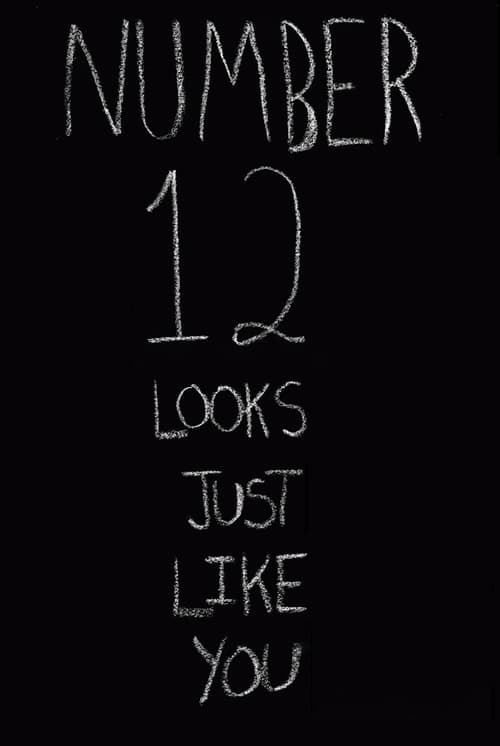 NUMBER
12
LOOKS
JUST
LIKE
YOU